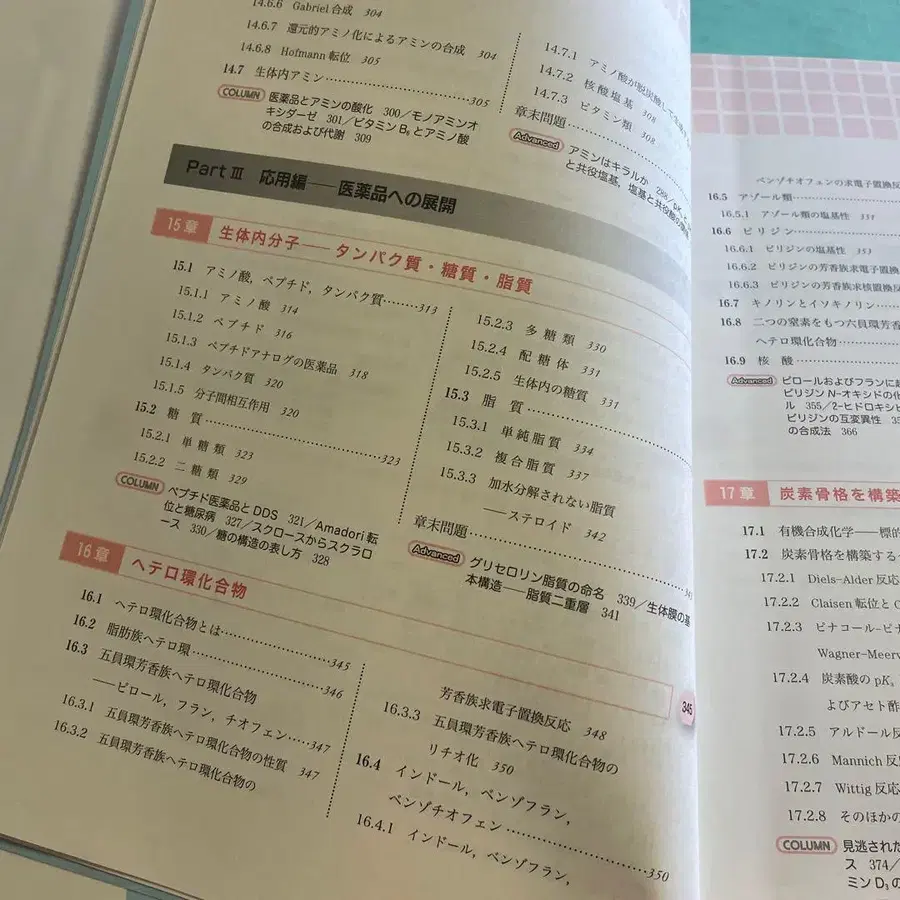 14.6.6 Gabriel 合成 304
14.6.7 還元的アミノ化によるアミンの合成 304
14.6.8 Hofmann 転位 305
14.7 生体内アミン 305
COLUMN 医薬品とアミンの酸化 300/モノアミンオ
キシダーゼ 301/ビタミン B₆ とアミノ酸
の合成および代謝 309
14.7.1 アミノ酸が脱炭酸して
14.7.2 核酸塩基 308
14.7.3 ビタミン類 308
章末問題
Advanced アミンはキラルか 288/pKₐ
と共役塩基,塩基と共役酸の
Part Ⅲ 応用編——医薬品への展開
15章 生体内分子——タンパク質・糖質・脂質
15.1 アミノ酸,ペプチド,タンパク質………313
15.1.1 アミノ酸 314
15.1.2 ペプチド 316
15.1.3 ペプチドアナログの医薬品 318
15.1.4 タンパク質 320
15.1.5 分子間相互作用 320
15.2 糖質………323
15.2.1 単糖類 323
15.2.2 二糖類 329
COLUMN ペプチド医薬品と DDS 321/Amadori 転
位と糖尿病 327/スクロースからスクラロ
ース 330/糖の構造の表し方 328
15.2.3 多糖類 330
15.2.4 配糖体 331
15.2.5 生体内の糖質 331
15.3 脂質………
15.3.1 単純脂質 334
15.3.2 複合脂質 337
15.3.3 加水分解されない脂質
——ステロイド 342
章末問題………
Advanced グリセロリン脂質の命名 339/生体膜の基
本構造——脂質二重層 341
16章 ヘテロ環化合物
345
16.1 ヘテロ環化合物とは………345
16.2 脂肪族ヘテロ環………346
16.3 五員環芳香族ヘテロ環化合物
——ピロール,フラン,チオフェン……347
16.3.1 五員環芳香族ヘテロ環化合物の性質 347
16.3.2 五員環芳香族ヘテロ環化合物の
芳香族求電子置換反応 348
16.3.3 五員環芳香族ヘテロ環化合物の
リチオ化 350
16.4 インドール,ベンゾフラン,
ベンゾチオフェン………350
16.4.1 インドール,ベンゾフラン,
ベンゾチオフェンの求電子置換反
16.5 アゾール類
16.5.1 アゾール類の塩基性 351
16.6 ピリジン
16.6.1 ピリジンの塩基性 353
16.6.2 ピリジンの芳香族求電子置換
16.6.3 ピリジンの芳香族求核置換反
16.7 キノリンとイソキノリン
16.8 二つの窒素をもつ六員環芳香
ヘテロ環化合物
16.9 核酸
Advanced ピロールおよびフランに
ピリジン N-オキシドの化
ル 355/2-ヒドロキシピ
ピリジンの互変異性
の合成法 366
17章 炭素骨格を構築
17.1 有機合成化学——標的
17.2 炭素骨格を構築する
17.2.1 Diels-Alder 反応
17.2.2 Claisen 転位と C
17.2.3 ピナコール-ピナ
Wagner-Meerw
17.2.4 炭素酸の pKₐ
よびアセト酢
17.2.5 アルドール反
17.2.6 Mannich 反
17.2.7 Wittig 反応
17.2.8 そのほかの
COLUMN 見逃された
ス 374/
ミン D₃ の